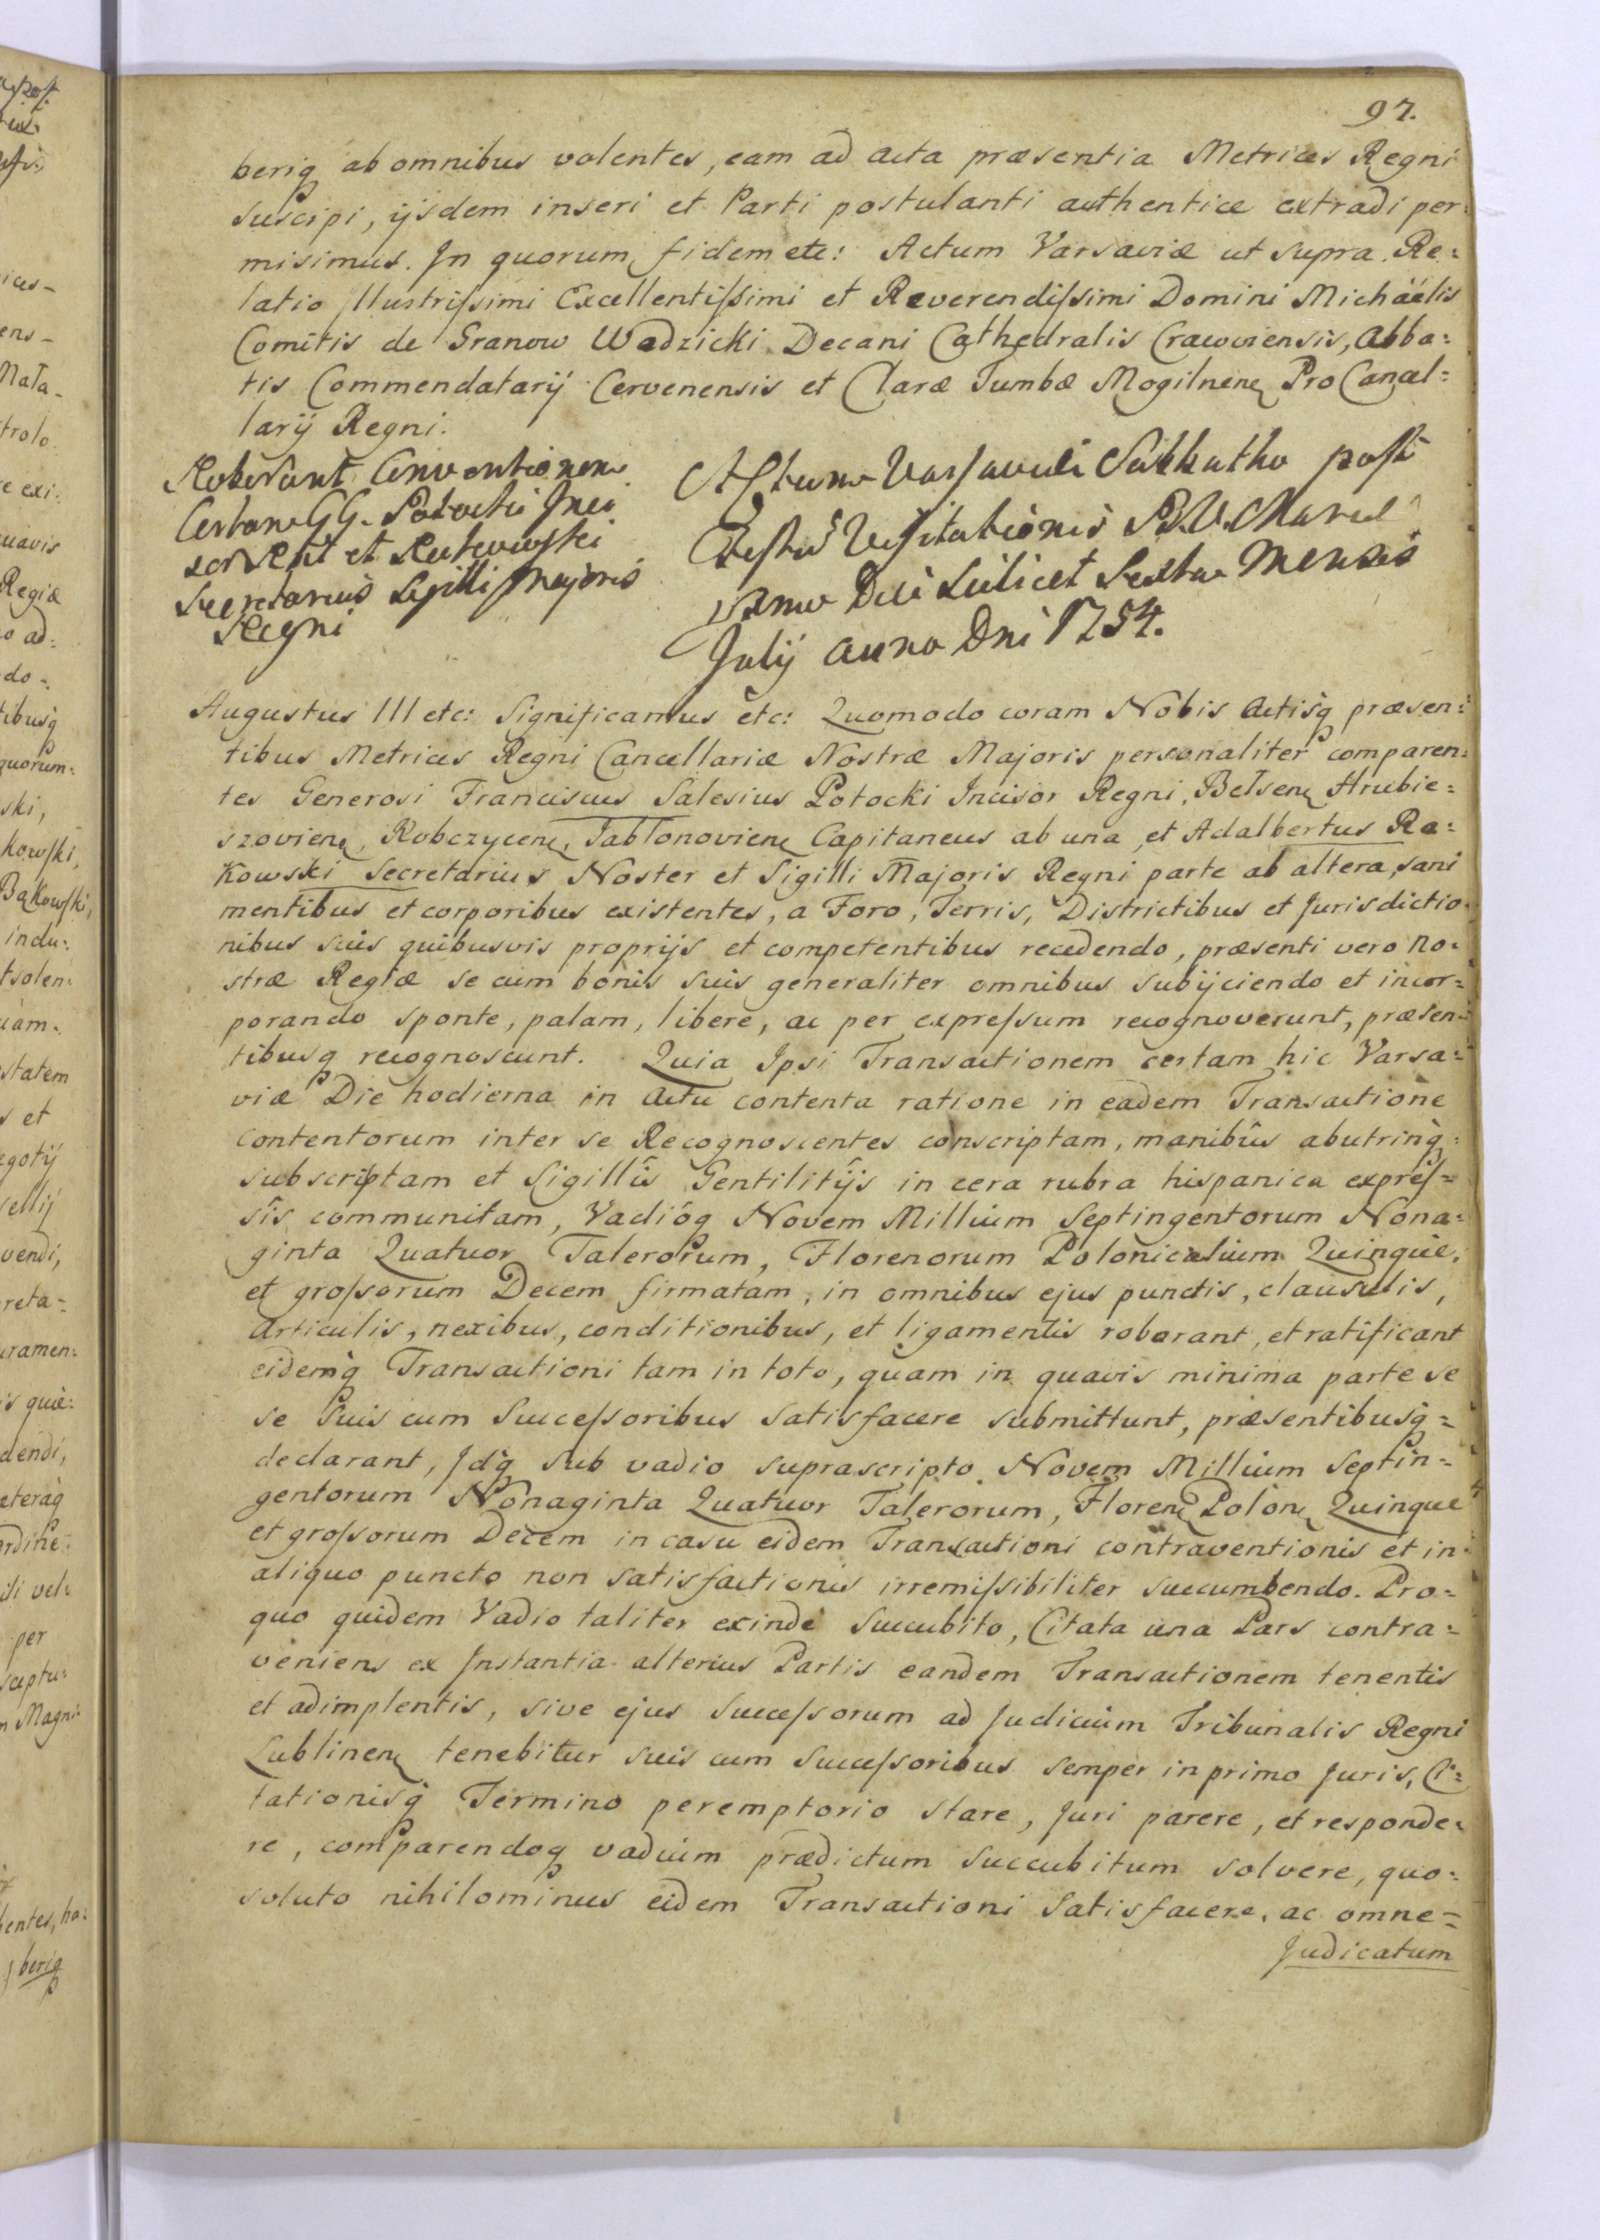 97.
beriq ab omnibus volentes, eam ad acta præsentia Metrices Regni
suscipi, ijsdem inseri et Parti postulanti authentice extradi per:
misimus. In quorum fidem etc: Actum Varsaviæ ut supra. Re:
latio Illustrissimi Excellentissimi et Reverendissimi Domini Michäelis
Comitis de Granow Wodzicki Decani Cathedralis Cracoviensis, Abba:
tis Commendatarij Cervenensis et Claræ Tumbæ Mogilnen Pro Cancel=
larij Regni.
Roborant Conventionem
Certam GG. Potocki Inci
sor Regni et Rakowski
Secretarius Sigilli Majoris
Regni
Actum Varsaviæ Sabbatho post
Festum Visitationis B.V. Mariæ
Die Scilicet Sexta Mensis
Julij anno Dni 1754.
Augustus III etc: Significamus etc: Quomodo coram Nobis Actisq præsen:
tibus Metrices Regni Cancellariæ Nostræ Majoris personaliter comparen:
tes Generosi Franciscus Salesius Potocki Incisor Regni, Belsen Hrubie=
szovien, Robczycen, Jabłonovien Capitaneus ab una, et Adalbertus Ra:
kowski Secretarius Noster et Sigilli Majoris Regni parte ab altera, sani
mentibus et corporibus existentes, a Foro, Terris, Districtibus et Jurisdictio:
nibus suis quibusvis proprijs et competentibus recedendo, præsenti vero No:
stræ Regiæ se cum bonis suis generaliter omnibus subijciendo et incor=
porando sponte, palam, libere, ac per expressum recognoverunt, præsen=
tibusq recognoscunt. Quia Ipsi Transactionem certam hic Varsa=
viæ Die hodierna in Actu contenta ratione in eadem Transactione
contentorum inter se Recognoscentes conscriptam, manibus abutrinq:
subscriptam et Sigillis Gentilitijs in cera rubra hispanica expres=
sis communitam, Vadioq Novem Millium Septingentorum Nona=
ginta Quatuor Talerorum, Florenorum Polonicalium Quinque,
et grossorum Decem firmatam, in omnibus ejus punctis, clausulis,
Articulis, nexibus, conditionibus, et ligamentis roborant, et ratificant
eidemq Transactioni tam in toto, quam in quavis minima parte se
se suis cum Successoribus satisfacere submittunt, præsentibusq=
declarant, Idq sub vadio suprascripto Novem Millium Septin=
gentorum Nonaginta Quatuor Talerorum, Floren Polon Quinque
et grossorum Decem in casu eidem Transactioni contraventionis et in=
aliquo puncto non satisfactionis irremissibiliter succumbendo. Pro=
quo quidem Vadio taliter exinde Succubito, Citata una Pars contra=
veniens ex Instantia alterius Partis eandem Transactionem tenentis
et adimplentis, sive ejus Successorum ad Judicium Tribunalis Regni
Lublinen tenebitur suis cum Successoribus semper in primo Juris, Ci=
tationisq Termino peremptorio stare, Juri parere, et responde:
re, comparendoq vadium prædictum succubitum solvere, quo=
soluto nihilominus eidem Transactioni satisfacere, ac omne=
Judicatum